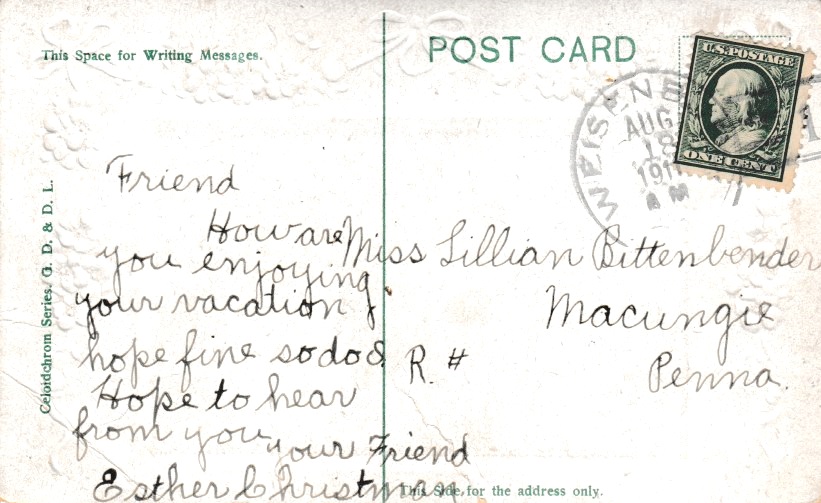 This Space for Writing Messages.
POST CARD
U.S. POSTAGE
ONE CENT
WEISEN
AUG
18
191
AM
Celoidchrom Series. G. D. & D. L.
Friend
How are
you enjoying
your vacation I
hope fine so do I
Hope to hear
from you
your Friend
Esther Christman
Miss Lillian Bittenbender
Macungie
R. #
Penna.
This Side for the address only.